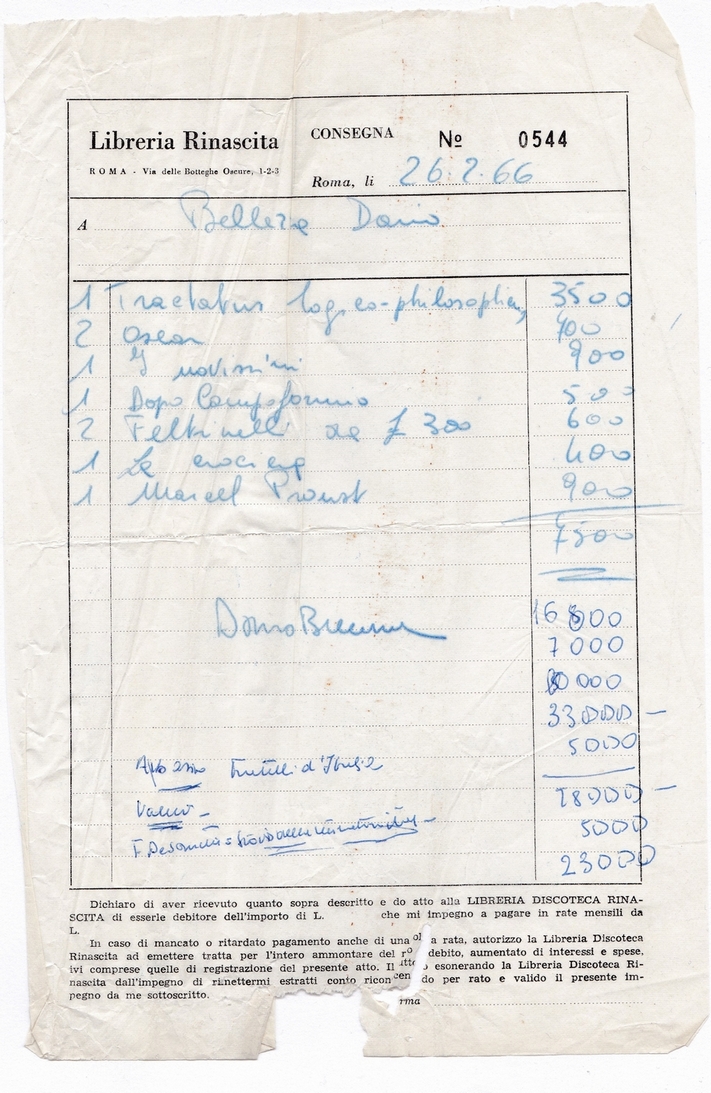 Libreria Rinascita
ROMA - Via delle Botteghe Oscure, 1-2-3
CONSEGNA Nº 0544
Roma, li 26.2.66
A Bellezza Dario
1 Tractatus logico-philosophicus 3500
2 Oscar 700
1 I novissimi 900
1 Dopo Campoformio 500
2 Feltrinelli da £ 300 600
1 400
1 Marcel Proust 900
7500
16000
7000
10000
33000 —
5000
Fratelli d'Italia
28000 —
5000
F. De Sanctis = Storia della letteratura
23000
Dichiaro di aver ricevuto quanto sopra descritto e do atto alla LIBRERIA DISCOTECA RINA-
SCITA di esserle debitore dell'importo di L. che mi impegno a pagare in rate mensili da
L.
In caso di mancato o ritardato pagamento anche di una rata, autorizzo la Libreria Discoteca
Rinascita ad emettere tratta per l'intero ammontare del debito, aumentato di interessi e spese,
ivi comprese quelle di registrazione del presente atto. Il esonerando la Libreria Discoteca Ri-
nascita dall'impegno di rimettermi estratti conto do per rato e valido il presente im-
pegno da me sottoscritto.
rma